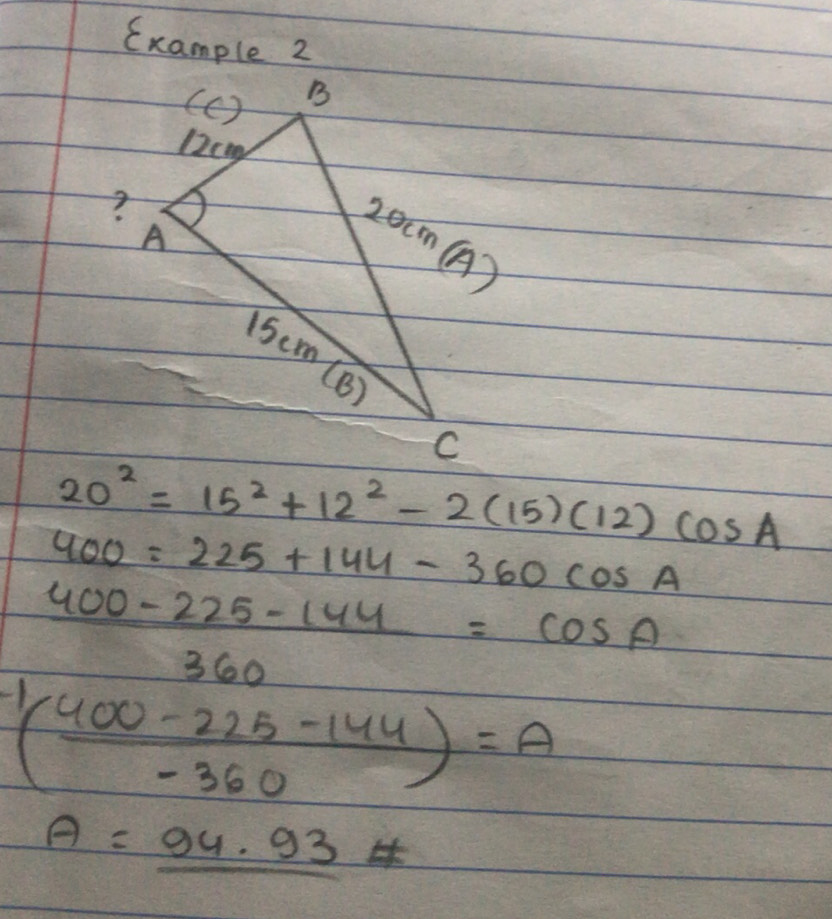 Example 2
B
(C)
12cm
?
A
20cm (A)
15cm (B)
C
20² = 15² + 12² - 2(15)(12) cos A
400 = 225 + 144 - 360 cos A
400 - 225 - 144 = cos A
360
-1 (400 - 225 - 144) = A
-360
A = 94.93 #